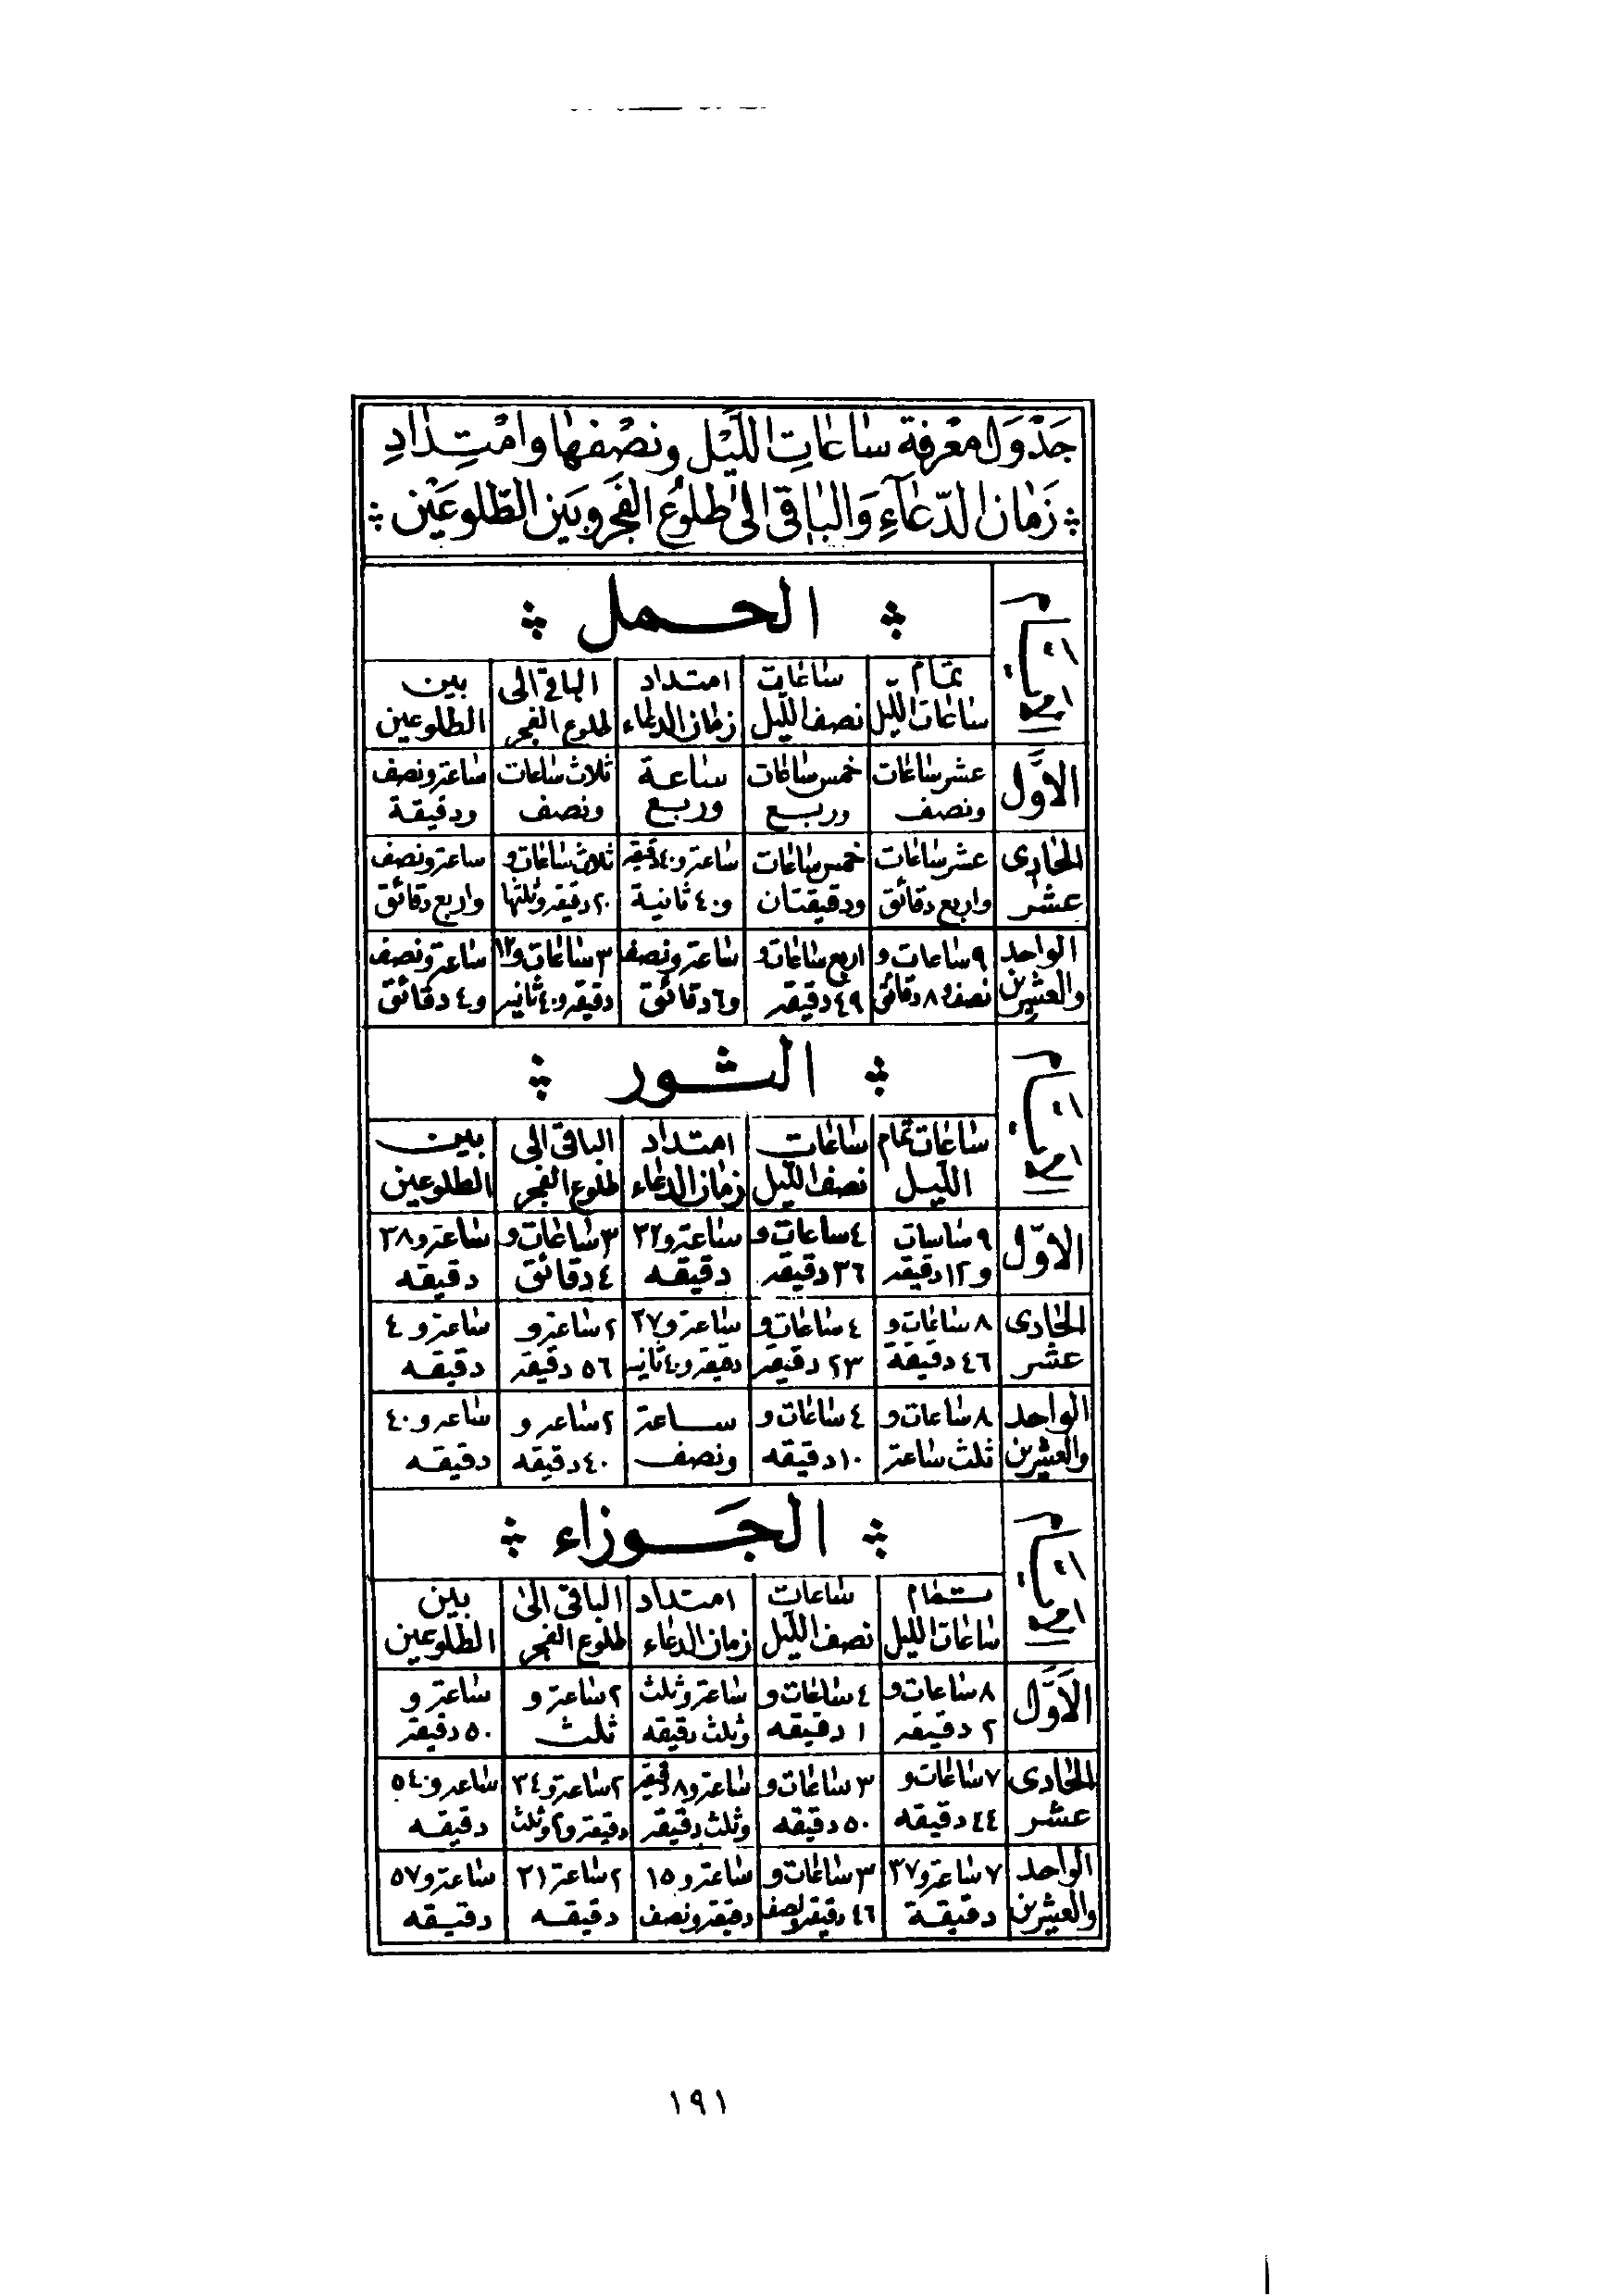 جَدْوَل مَعْرِفَة سٰاعٰاتِ اللَّيْل وَنِصْفِهٰا وَامْتِدٰادِ
زَمٰانِ الدُّعٰآءِ وَالبٰاقی اِلىٰ طُلُوعِ الفَجْرِ وَبَيْن الطُّلوعَيْن
الحمل
تمام ساعات الليل | ساعات نصف الليل | امتداد زمان الدعاء | الباقی الی طلوع الفجر | بين الطلوعين
الاوّل | عشر ساعات ونصف | خمس ساعات وربع | ساعة وربع | ثلاث ساعات ونصف | ساعة ونصف ودقيقة
الحادی عشر | عشر ساعات واربع دقائق | خمس ساعات ودقيقتان | ساعة و٤٠ دقيقة و٤٠ ثانية | ثلاث ساعات و ٢٠ دقيقة وثلثها | ساعة ونصف واربع دقائق
الواحد والعشرين | ٩ ساعات و نصف و٨ دقائق | اربع ساعات و ٤٩ دقيقة | ساعة ونصف و٦ دقائق | ٣ ساعات و١٢ دقيقة و٤٠ ثانية | ساعة ونصف و٤ دقائق
الثور
ساعات تمام الليل | ساعات نصف الليل | امتداد زمان الدعاء | الباقی الی طلوع الفجر | بين الطلوعين
الاوّل | ٩ ساسات و١٢ دقيقة | ٤ ساعات و ٣٦ دقيقة | ساعة و٣٢ دقيقه | ٣ ساعات و ٤ دقائق | ساعة و٣٨ دقيقه
الحادی عشر | ٨ ساعات و ٤٦ دقيقة | ٤ ساعات و ٢٣ دقيقة | ساعة و٢٧ دقيقة و٤٠ ثانية | ٢ ساعة و ٥٦ دقيقة | ساعة و ٤ دقيقه
الواحد والعشرين | ٨ ساعات و ثلث ساعة | ٤ ساعات و ١٠ دقيقه | ساعة ونصف | ٢ ساعة و ٤٠ دقيقه | ساعة و ٤٠ دقيقه
الجَوزاء
تمام ساعات الليل | ساعات نصف الليل | امتداد زمان الدعاء | الباقی الیٰ طلوع الفجر | بين الطلوعين
الاَوَّل | ٨ ساعات و ٢ دقيقة | ٤ ساعات و ١ دقيقه | ساعة وثلث وثلث دقيقه | ٢ ساعة و ثلث | ساعة و ٥٠ دقيقة
الحادی عشر | ٧ ساعات و ٤٤ دقيقه | ٣ ساعات و ٥٠ دقيقه | ساعة و٨ دقيقة وثلث دقيقة | ٢ ساعة و٣٤ دقيقة و٢ وثلث | ساعة و ٥٤ دقيقه
الواحد والعشرين | ٧ ساعة و٣٧ دقيقة | ٣ ساعات و ٤٦ دقيقة ونصف | ساعة و ١٥ دقيقة ونصف | ٢ ساعة ٢١ دقيقه | ساعة و٥٧ دقيقه
١٩١